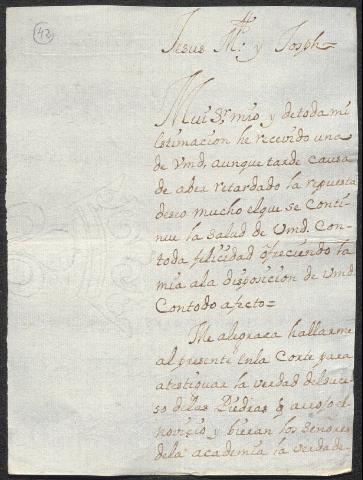 42
Jesus M.ª y Joseph
Mui S.r mio y de toda mi
estimacion he recevido una
de Vmd, aunque tarde causa
de aver retardado la repuesta
deseo mucho el que se conti-
nue la salud de Vmd. Con-
toda felicidad ofreciendo la
mia ala disposicion de Vmd
Contodo afecto=
Me alegrara hallarme
al presente enla Corte para
atestiguar la verdad del suce-
so delas Piedras q arrojo el
novicio y vieran los Señores
dela academia la verdade-